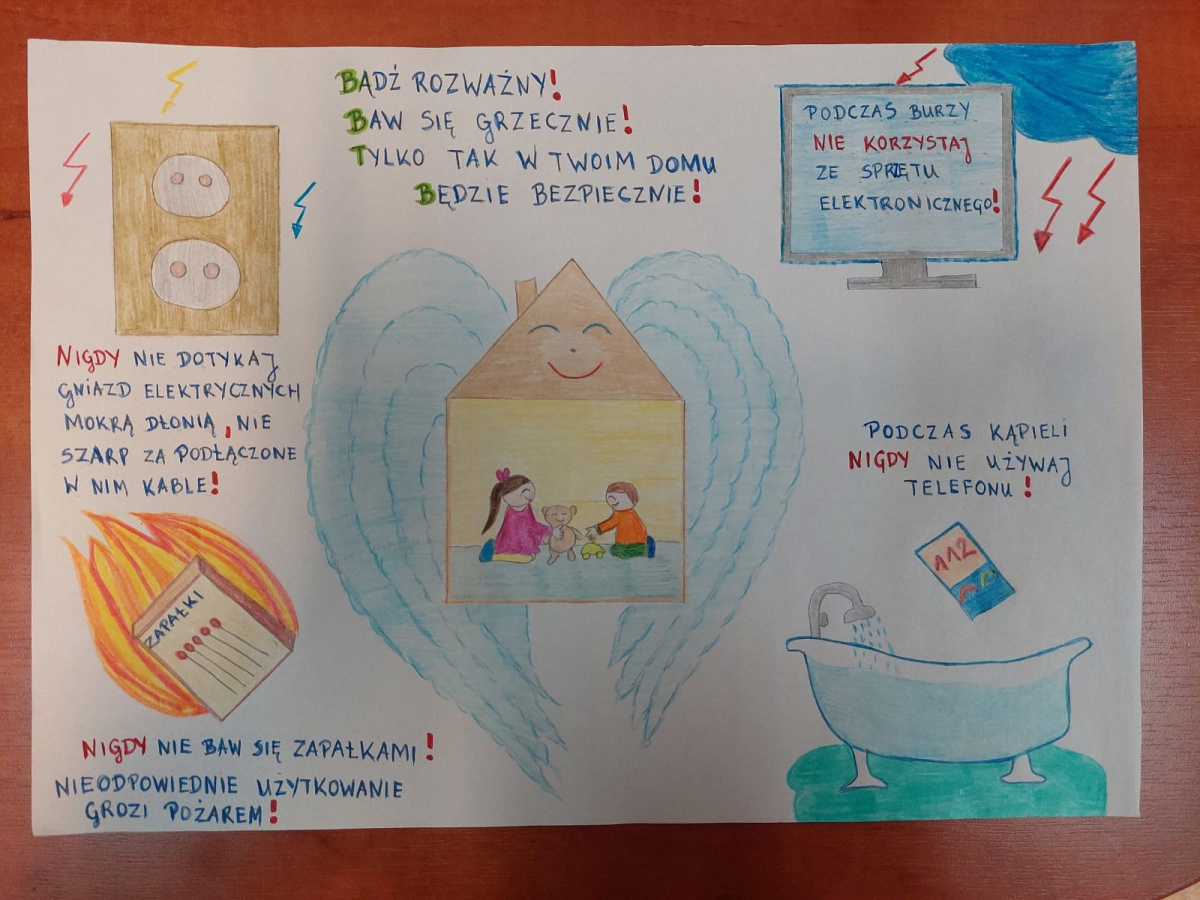 BĄDŹ ROZWAŻNY!
BAW SIĘ GRZECZNIE!
TYLKO TAK W TWOIM DOMU
BĘDZIE BEZPIECZNIE!
PODCZAS BURZY
NIE KORZYSTAJ
ZE SPRZĘTU
ELEKTRONICZNEGO!
NIGDY NIE DOTYKAJ
GNIAZD ELEKTRYCZNYCH
MOKRĄ DŁONIĄ, NIE
SZARP ZA PODŁĄCZONE
W NIM KABLE!
PODCZAS KĄPIELI
NIGDY NIE UŻYWAJ
TELEFONU!
112
ZAPAŁKI
NIGDY NIE BAW SIĘ ZAPAŁKAMI!
NIEODPOWIEDNIE UŻYTKOWANIE
GROZI POŻAREM!